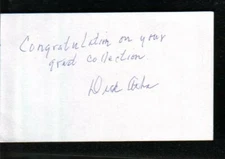 Congratulation on your
great collection
Dick